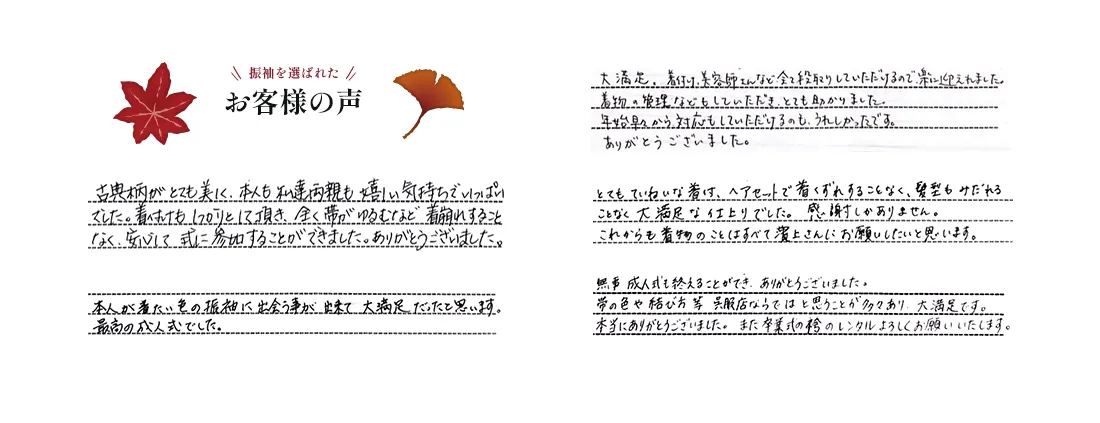 振袖を選ばれた
お客様の声
古典柄がとても美しく、本人も私達両親も嬉しい気持ちでいっぱい
でした。着付けもしっかりとして頂き、全く帯がゆるむなど着崩れすること
なく、安心して式に参加することができました。ありがとうございました。
本人が着たい色の振袖に出会う事が出来て大満足だったと思います。
最高の成人式でした。
大満足。着付け、美容師さんなど全て段取りしていただけるので楽に迎えれました。
着物の管理などもしていただき、とても助かりました。
年始早々から対応もしていただけるのも、うれしかったです。
ありがとうございました。
とてもていねいな着付、ヘアセットで着くずれすることなく、髪型もみだれる
ことなく大満足な仕上りでした。感謝しかありません。
これからも着物のことはすべて濱上さんにお願いしたいと思います。
無事成人式も終えることができ、ありがとうございました。
帯の色や結び方等呉服店ならではと思うことが多々あり、大満足です。
本当にありがとうございました。また卒業式の袴のレンタルよろしくお願いいたします。